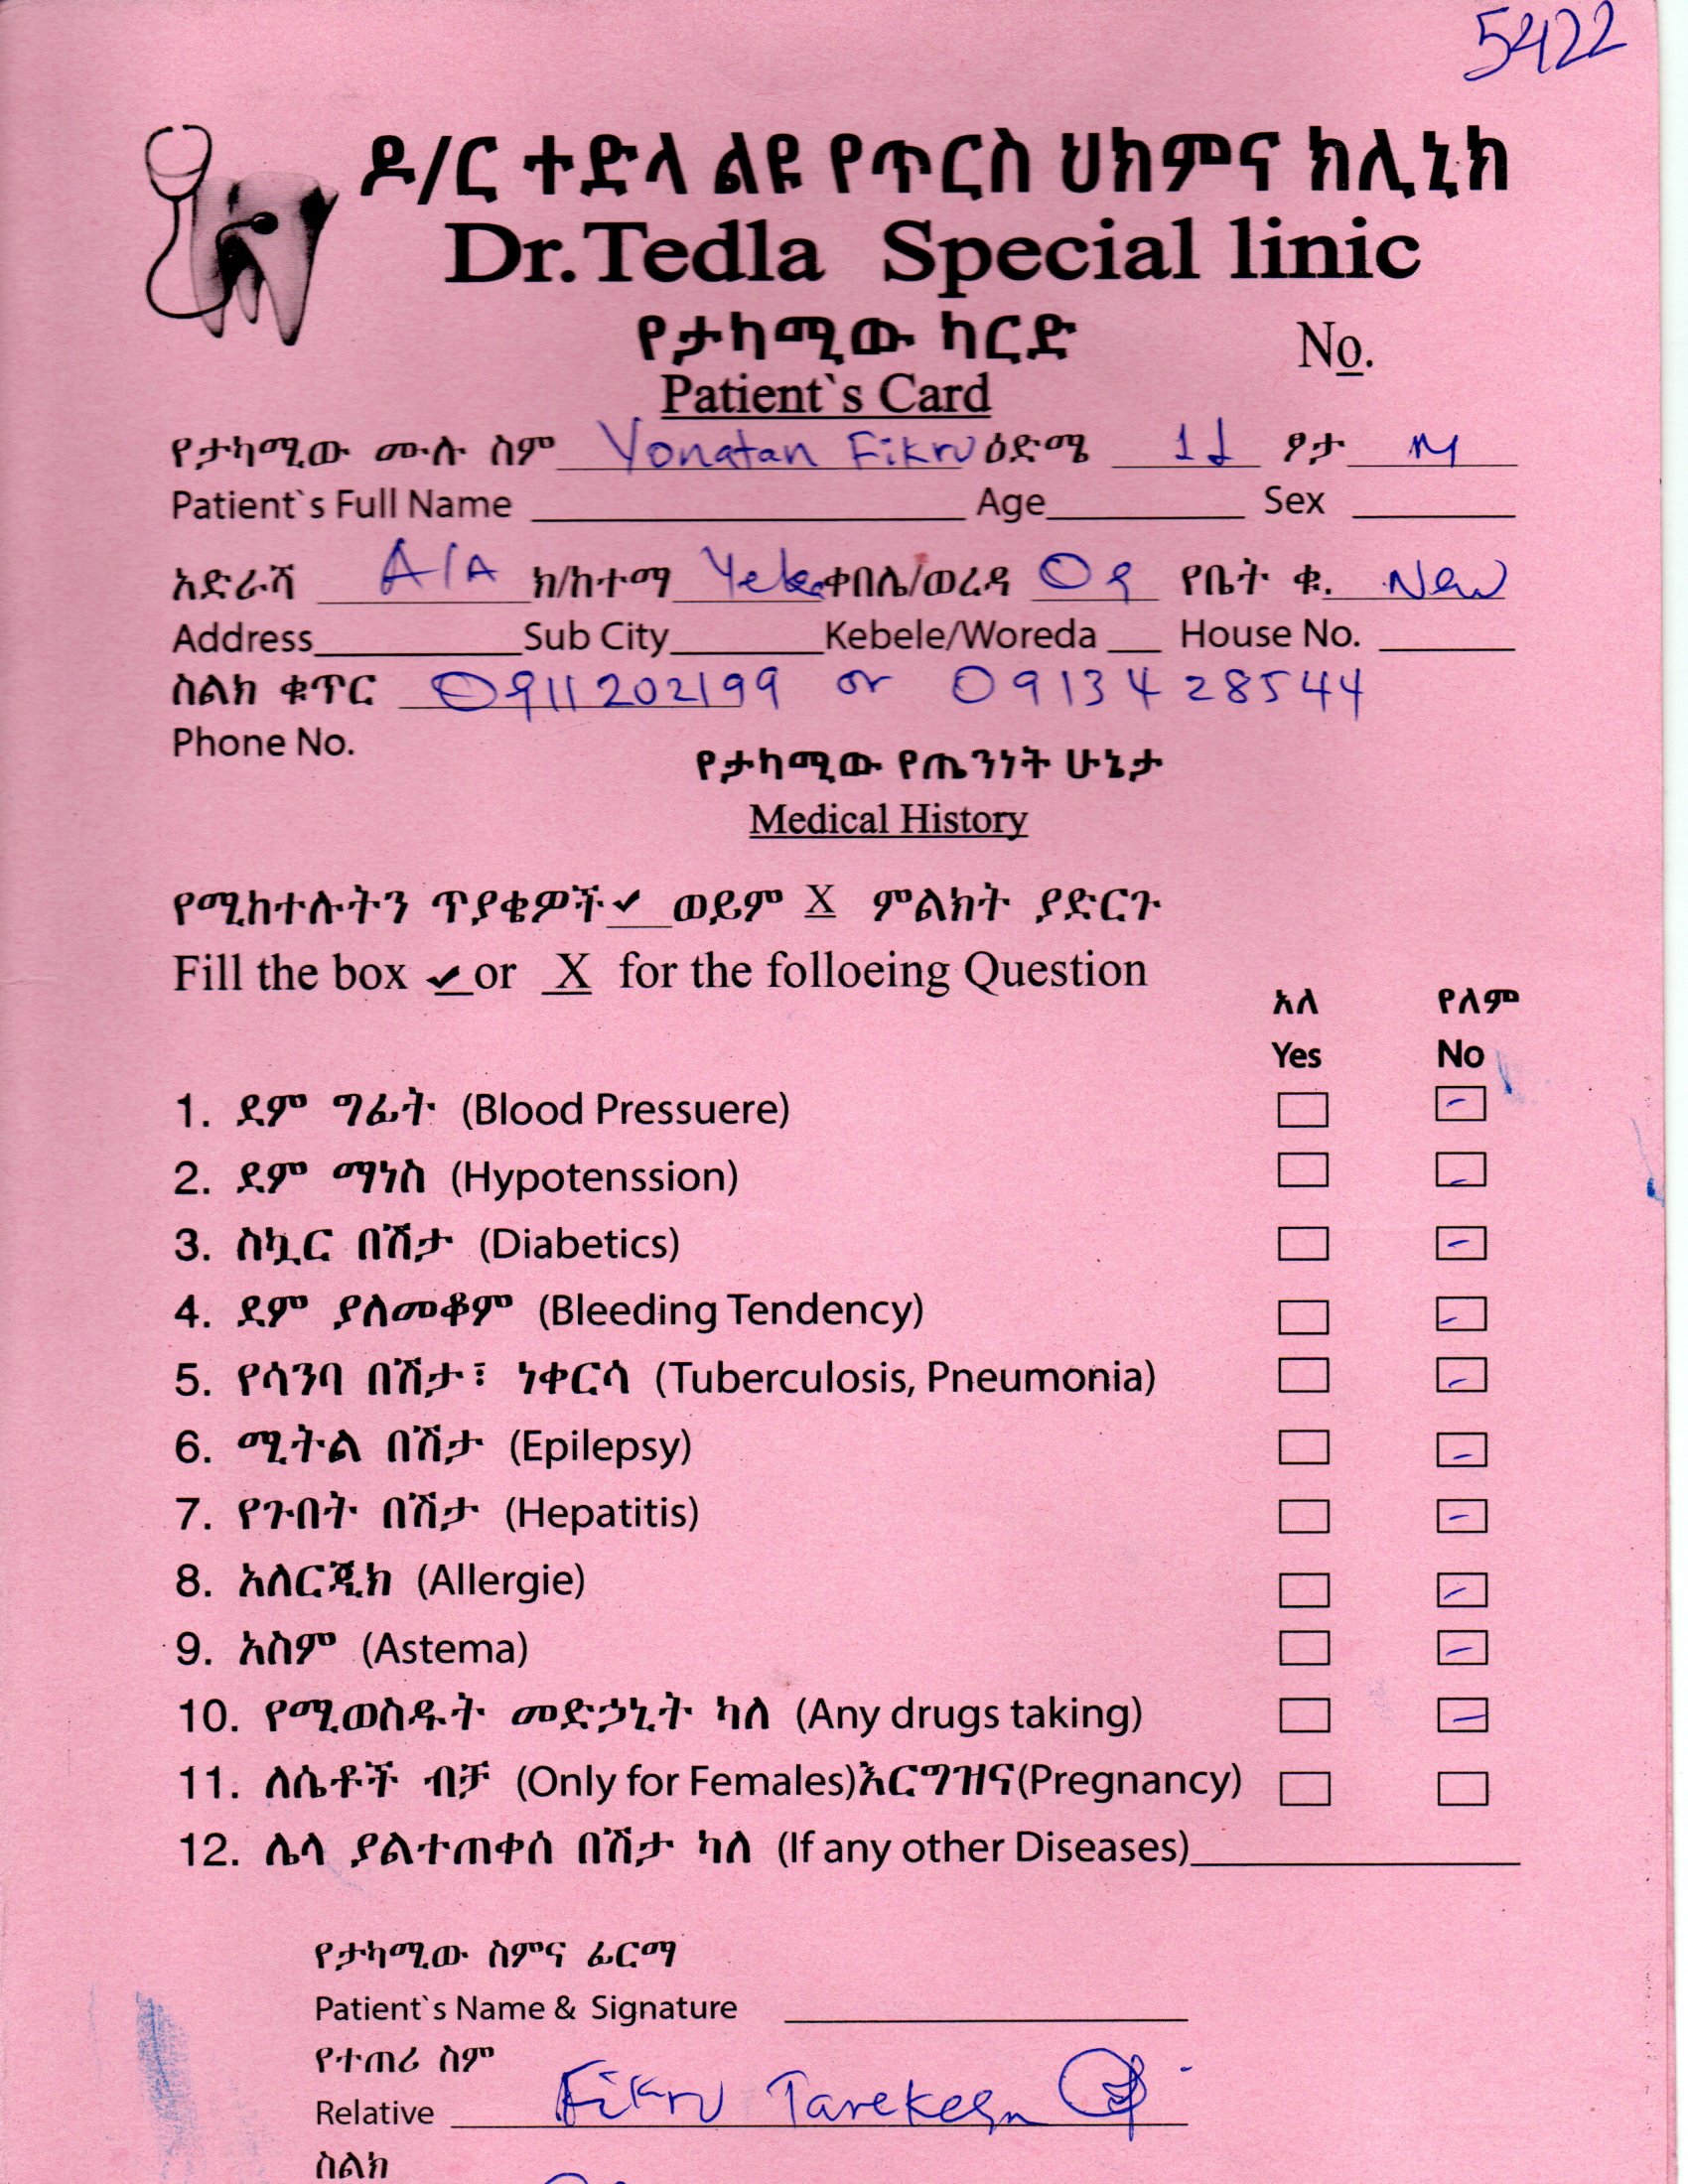 5422
ዶ/ር ተድላ ልዩ የጥርስ ህክምና ክሊኒክ
Dr.Tedla Special linic
የታካሚው ካርድ
No.
Patient`s Card
የታካሚው ሙሉ ስም Yonatan Fikru ዕድሜ ፆታ M
Patient`s Full Name Age Sex
አድራሻ A/A ክ/ከተማ Yeka ቀበሌ/ወረዳ 09 የቤት ቁ. New
Address Sub City Kebele/Woreda House No.
ስልክ ቁጥር 0911202199 or 0913428544
Phone No.
የታካሚው የጤንነት ሁኔታ
Medical History
የሚከተሉትን ጥያቄዎች ✓ ወይም X ምልክት ያድርጉ
Fill the box ✓ or X for the folloeing Question
አለ የለም
Yes No
1. ደም ግፊት (Blood Pressuere)
2. ደም ማነስ (Hypotenssion)
3. ስኳር በሽታ (Diabetics)
4. ደም ያለመቆም (Bleeding Tendency)
5. የሳንባ በሽታ፣ ነቀርሳ (Tuberculosis, Pneumonia)
6. ሚትል በሽታ (Epilepsy)
7. የጉበት በሽታ (Hepatitis)
8. አለርጂክ (Allergie)
9. አስም (Astema)
10. የሚወስዱት መድኃኒት ካለ (Any drugs taking)
11. ለሴቶች ብቻ (Only for Females)እርግዝና(Pregnancy)
12. ሌላ ያልተጠቀሰ በሽታ ካለ (If any other Diseases)
የታካሚው ስምና ፊርማ
Patient`s Name & Signature
የተጠሪ ስም
Relative Fikru Tarekegn
ስልክ